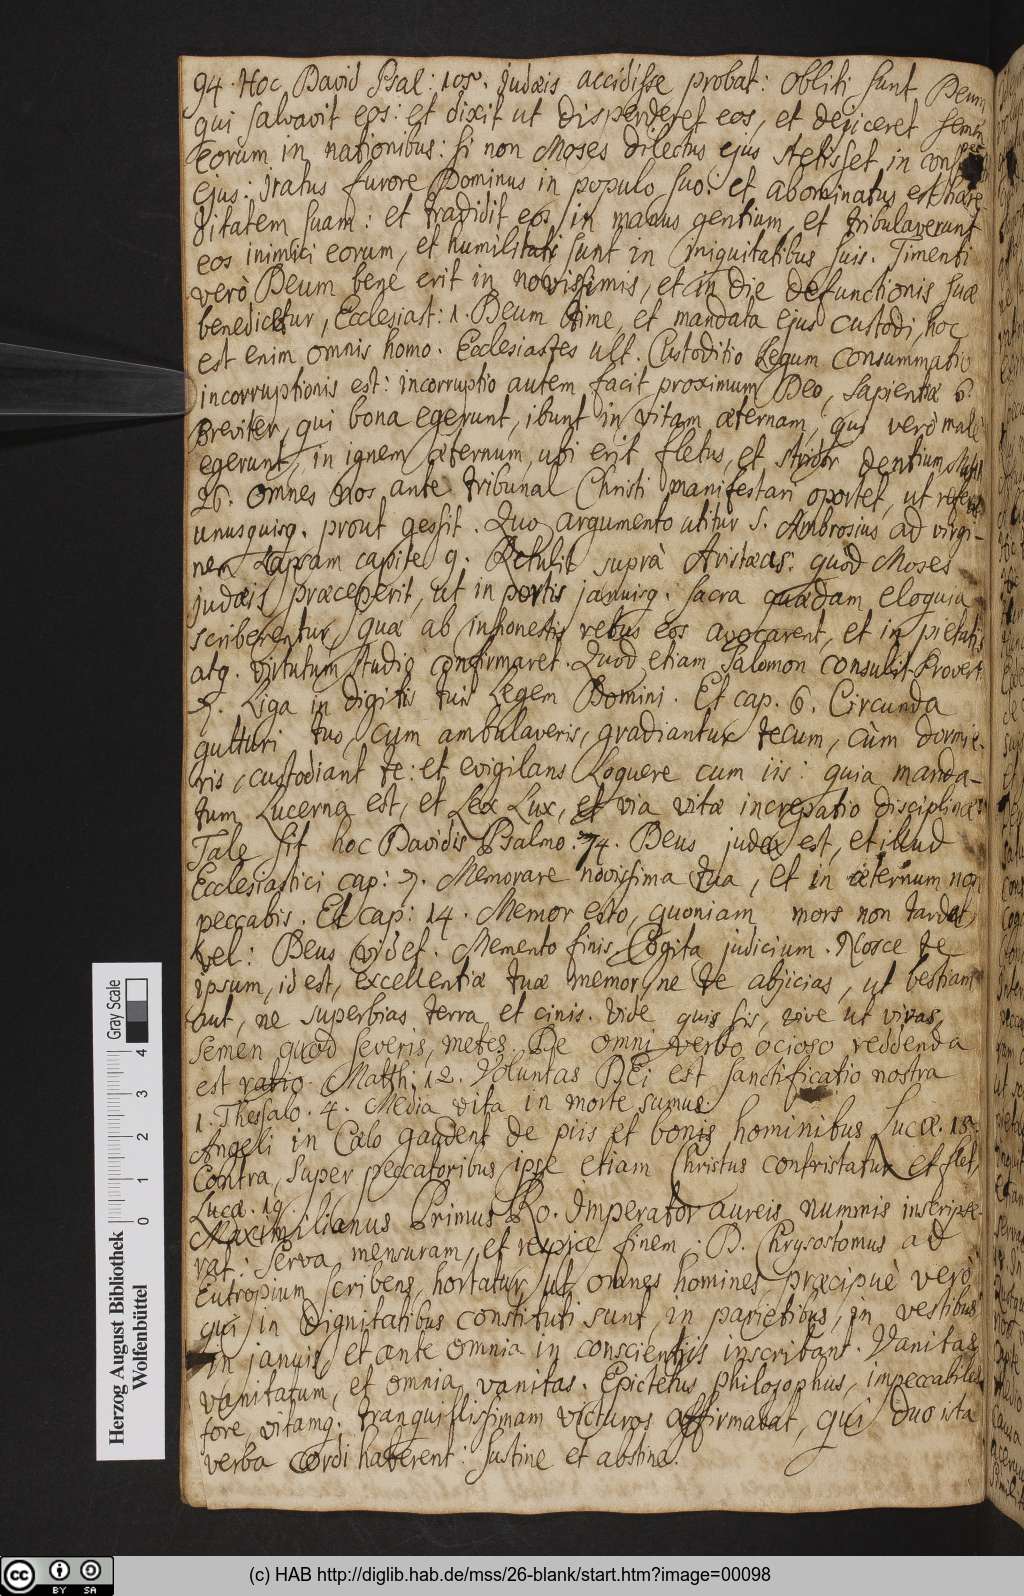 94. Hoc David Psal: 105. Judæis accidisse probat: Obliti sunt Deum
qui salvavit eos: et dixit ut disperderet eos, et dejiceret semen
eorum in nationibus: si non Moses dilectus ejus stetisset in conspec
ejus: Iratus furore Dominus in populo suo: et abominatus est hære-
ditatem suam: et tradidit eos in manus gentium, et tribulaverunt
eos inimici eorum, et humiliati sunt in iniquitatibus suis. Timenti
verò Deum bene erit in novissimis, et in die defunctionis suæ
benedicetur, Ecclesiast: 1. Deum time, et mandata ejus custodi, hoc
est enim omnis homo. Ecclesiastes ult. Custoditio Legum consummatio
incorruptionis est: incorruptio autem facit proximum Deo, Sapientiæ 6.
Breviter, qui bona egerunt, ibunt in vitam æternam, qui verò malè
egerunt, in ignem æternum, ubi erit fletus, et stridor dentium Matth
26. Omnes nos ante tribunal Christi manifestari oportet, ut referat
unusquisq. prout gessit. Quo argumento utitur S. Ambrosius ad virgi-
nem Lapsam capite 9. Retulit suprà Aristæas. quòd Moses
judæis præceperit, ut in portis januisq. sacra quædam eloquia
scriberentur, quæ ab inhonestis rebus eos avocarent, et in pietatis
atq. virtutum studio confirmaret. Quod etiam Salomon consulit Proverb.
7. Liga in digitis tuis Legem Domini. Et cap. 6. Circunda
gutturi tuo, cum ambulaveris, gradiantur tecum, cùm dormie-
ris, custodiant te: et evigilans Loquere cum iis: quia manda-
tum Lucerna est, et Lex Lux, et via vitæ increpatio disciplinæ:
Tale sit hoc Davidis Psalmo: 74. Deus judex est, et illud
Ecclesiastici cap: 7. Memorare novissima tua, et in æternum non
peccabis. Et cap: 14. Memor esto, quoniam mors non tardat,
vel: Deus videt. Memento finis, Cogita judicium. Nosce te
ipsum, id est, excellentiæ tuæ memor, ne te abjicias, ut bestiam
aut, ne superbias terra et cinis. Vide quis sis, vive ut vivas,
Semen quod severis, metes. De omni verbo ocioso reddenda
est ratio. Matth: 12. Voluntas DEi est sanctificatio nostra
1. Thessalo. 4. Media vita in morte sumus.
Angeli in Cœlo gaudent de piis et bonis hominibus Lucæ. 15.
Contra, super peccatoribus ipse etiam Christus contristatur et flet,
Lucæ. 19.
Maximilianus Primus Ro. Imperator aureis nummis inscripse-
rat: Serva mensuram, et respice finem. D. Chrysostomus ad
Eutropium scribens, hortatur, ut omnes homines, præcipuè verò
qui in dignitatibus constituti sunt, in parietibus, in vestibus
in januis, et ante omnia in conscientiis inscribant. Vanitas
vanitatum, et omnia vanitas. Epictetus philosophus, impeccabiles
fore, vitamq. tranquillissimam victuros affirmabat, qui duo ista
verba cordi haberent: Sustine et abstine.
Gray Scale
0 1 2 3 4
Herzog August Bibliothek
Wolfenbüttel
cc BY SA
(c) HAB http://diglib.hab.de/mss/26-blank/start.htm?image=00098